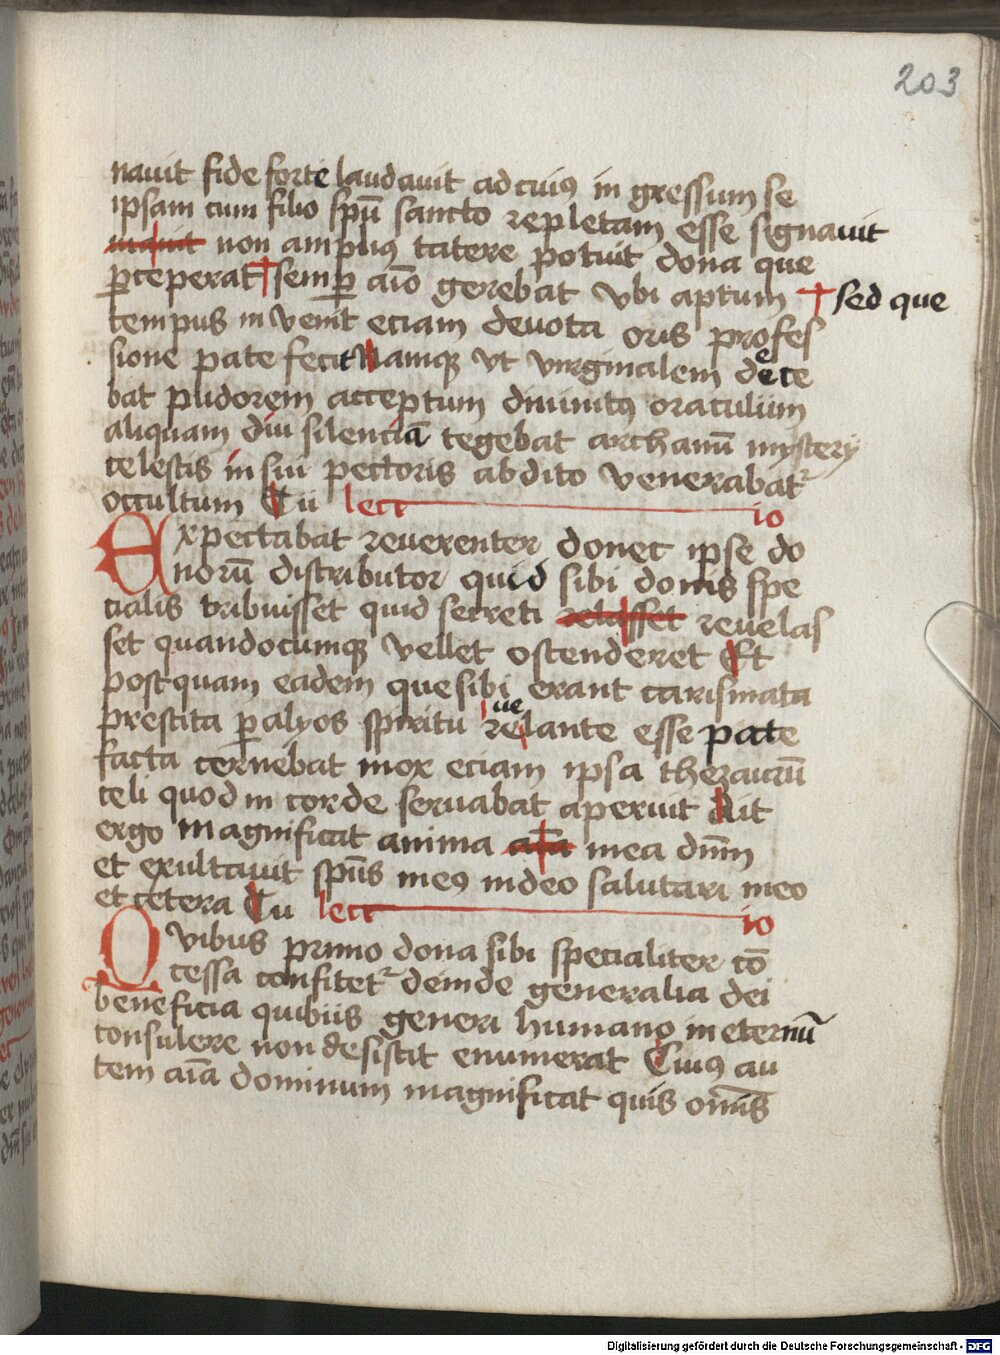 203
nauit fide forte laudauit ad cuiꝯ in gressum se
ipsam cum filio spū sancto repletam esse signauit
inquit non ampliꝯ tacere potuit dona que
ꝑceperat † semꝑ aīo gerebat vbi aptum † sed que
tempus in venit eciam deuota oris profes
sione pate fecit Namqꝫ vt virginalem dece
bat pudorem acceptum diuinitꝯ oraculum
aliquam diu silenciā tegebat archanū mystery
celestis in sui pectoris abdito venerabatᷣ
occultum Tu lectio
Expectabat reuerenter donec ipse do
norū distributor quid sibi donis spe
cialis tribuisset quid secreti relasset reuelas
set quandocumqꝫ vellet ostenderet Et
postquam eadem que sibi erant carismata
prestita ꝑ alyos spiritu reuelante esse pate
facta cernebat mox eciam ipsa thezaurū
celi quod in corde seruabat aperuit Ait
ergo magnificat anima aīa mea dn̄m
et exultauit spūs meꝯ in deo salutari meo
et cetera Tu lectio
Quibus primo dona sibi specialiter cō
cessa confitetᷣ deinde generalia dei
beneficia quibus generi humano in eternū
consulere non desistit enumerat Eiuꝯ au
tem aīa dominum magnificat quis om̄is
Digitalisierung gefördert durch die Deutsche Forschungsgemeinschaft - DFG